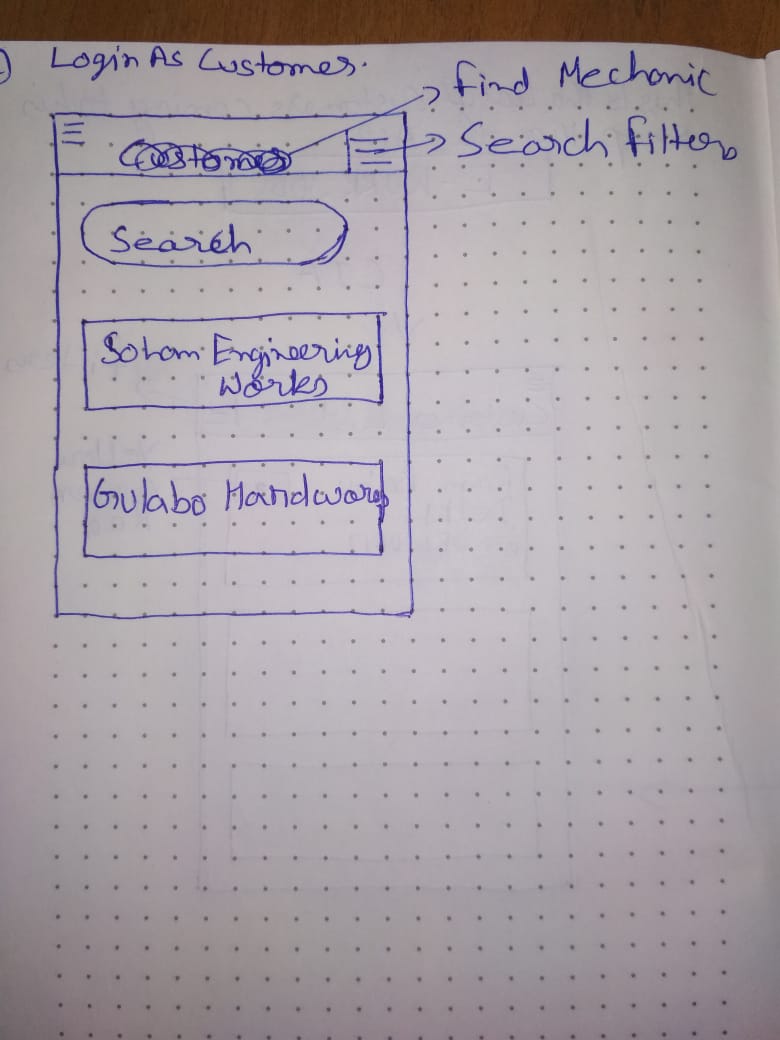 Login As Customer.
Find Mechanic
Customer
Search filter
Search
Soham Engineering
Works
Gulabo Hardware